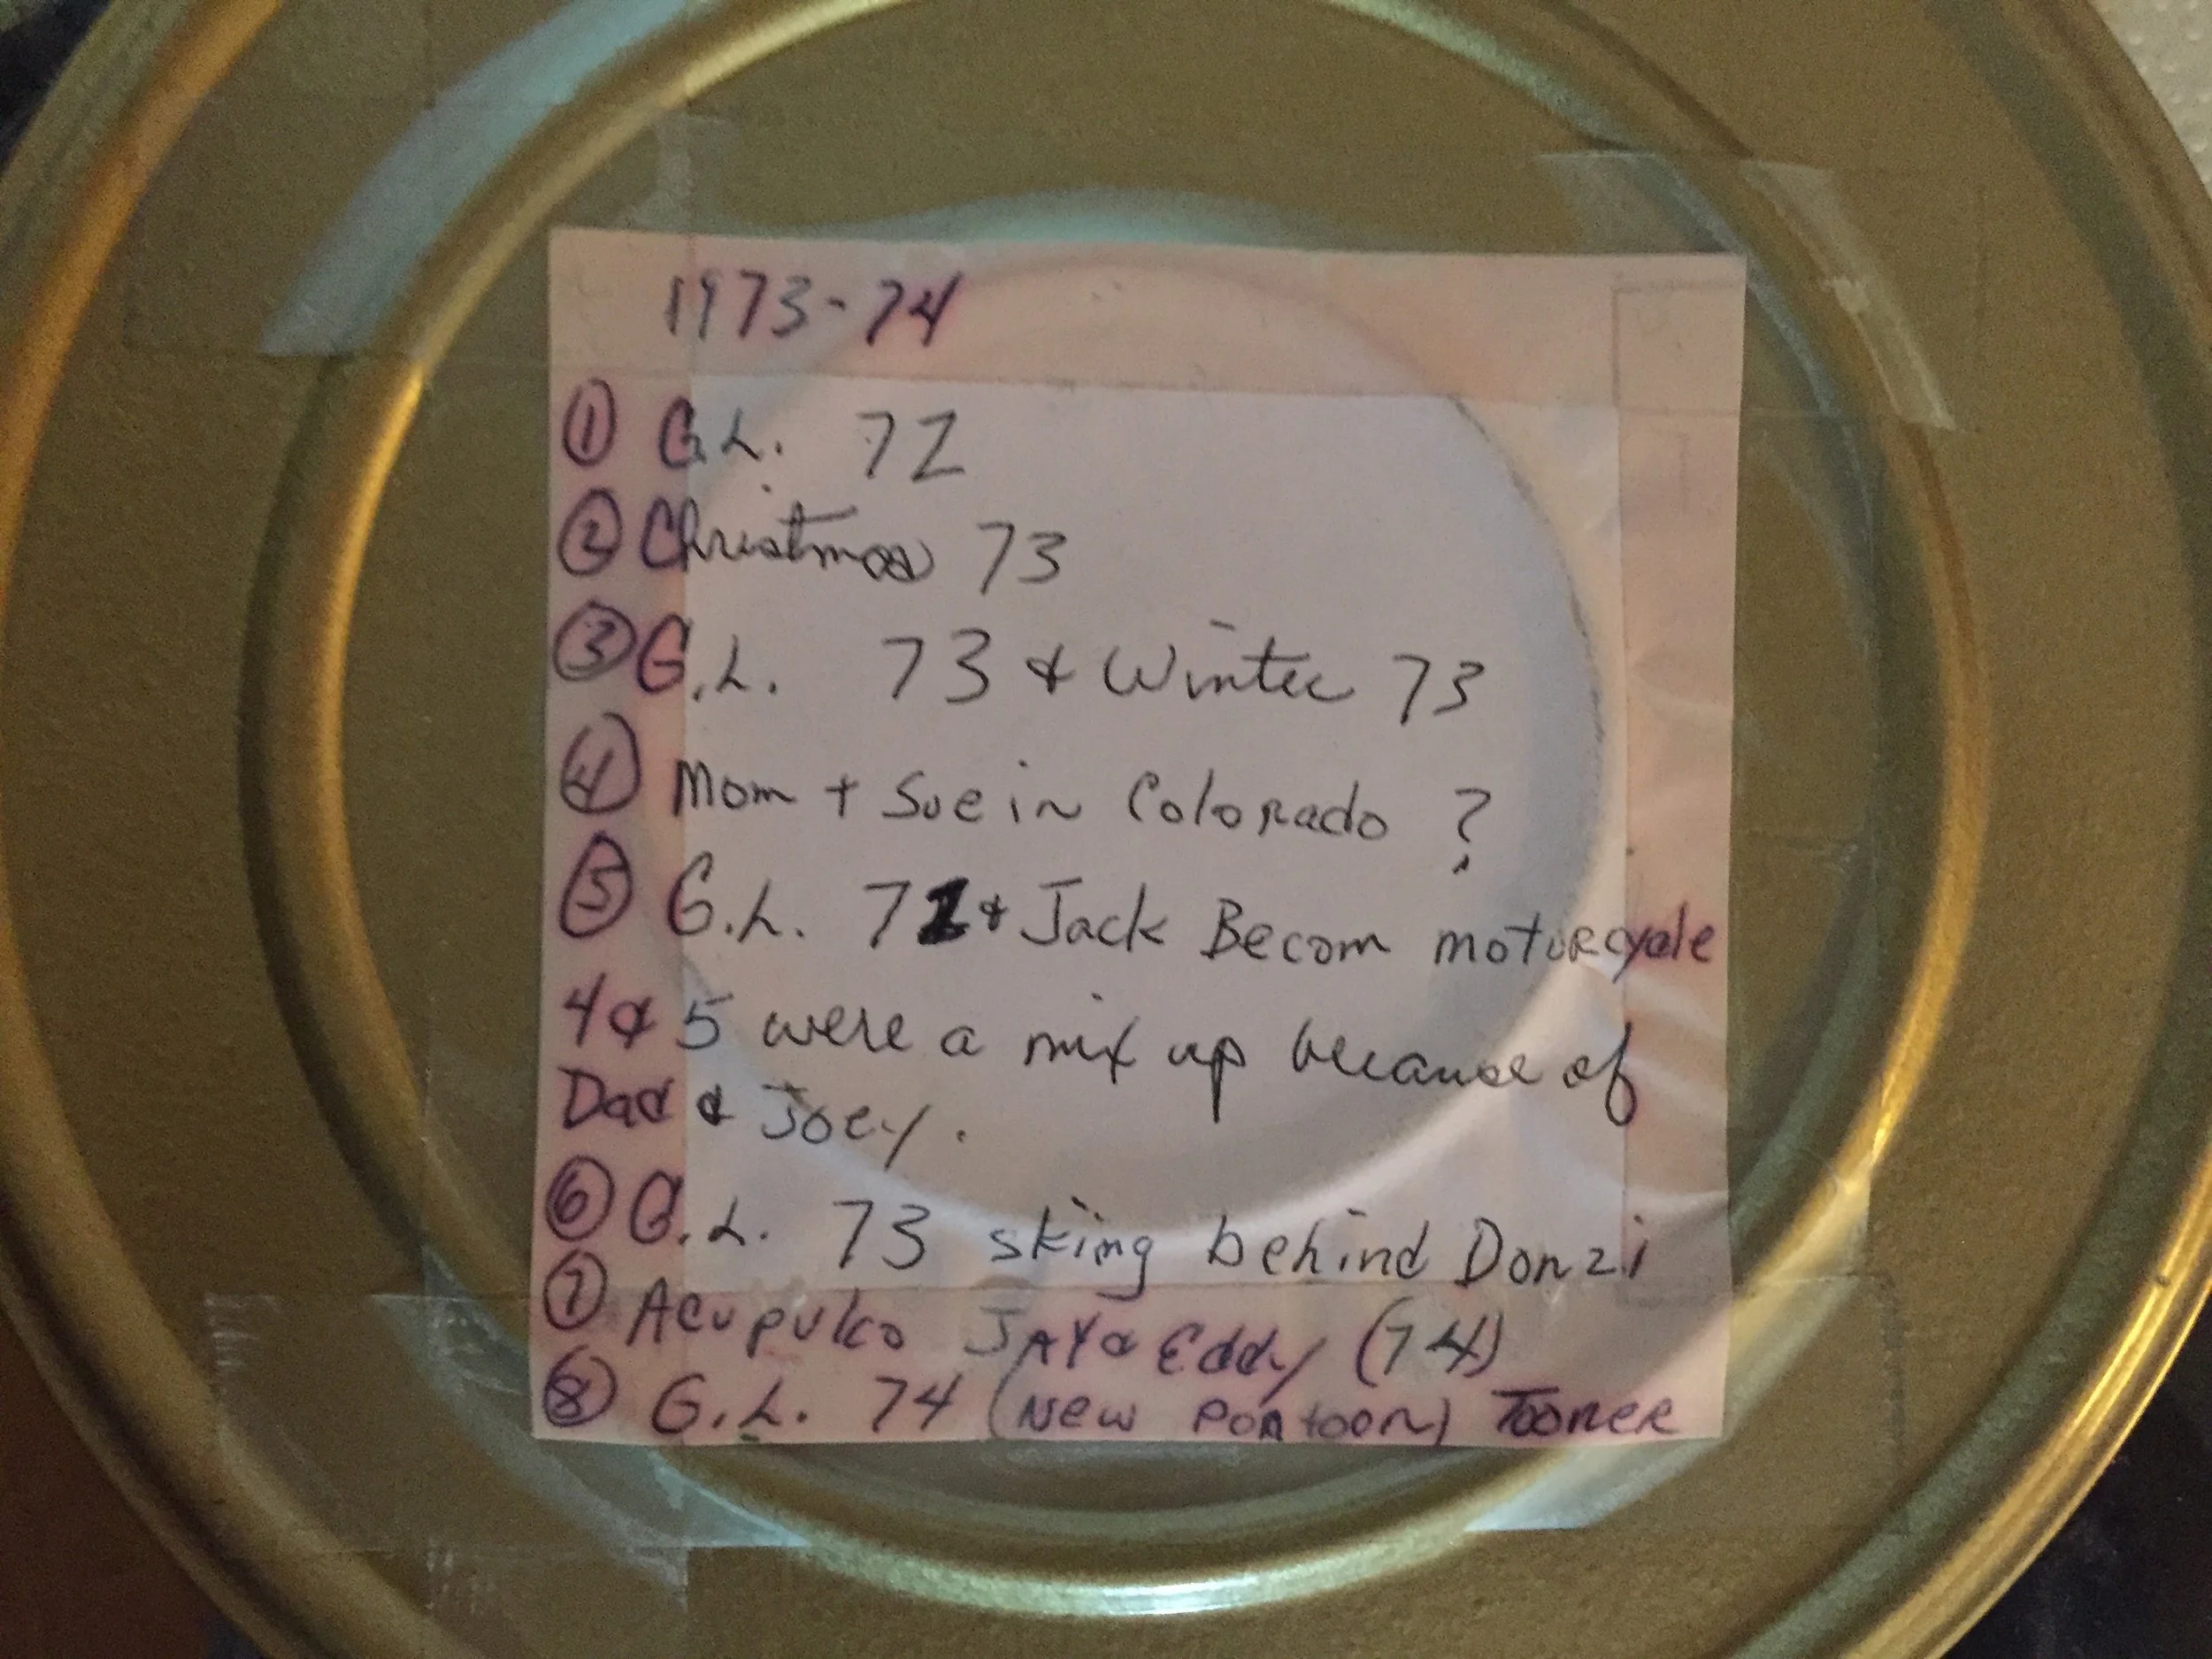 1973-74
① G.L. 72
② Christmas 73
③ G.L. 73 & Winter 73
④ Mom + Sue in Colorado ?
⑤ G.L. 72 & Jack Becom motorcycle
4 & 5 were a mix up because of
Dad & Joey.
⑥ G.L. 73 sking behind Donzi
⑦ Acupulco JAY & Eddy (74)
⑧ G.L. 74 (New Pontoon) Tooner